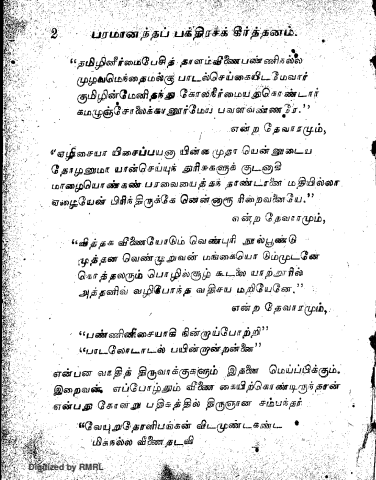 2 பரமானந்தப் பக்திரசக் கீர்த்தனம்.
“தமிழினீர்மைபேசித் தாளம்வீணைபண்ணிநல்ல
முழவமொந்தைமல்கு பாடல்செய்கையிடமோவார்
குமிழின்மேனிதந்து கோலநீர்மையதுகொண்டார்
கமழுஞ்சோலைக்கானூர்மேய பவளவண்ணரே.”
என்ற தேவாரமும்,
“ஏழிசையா யிசைப்பயனா யின்னமுதா யென்னுடைய
தோழனுமா யான்செய்யுந் துரிசுகளுக் குடனாகி
மாழையொண்கண் பரவையைத்தந் தாண்டானை மதியில்லா
ஏழையேன் பிரிந்திருக்கே னென்னாரூ ரிறைவனையே.”
என்ற தேவாரமும்,
“வித்தக வீணையொடும் வெண்புரி நூல்பூண்டு
முத்தன வெண்முறுவன் மங்கையொ டும்முடனே
கொத்தலரும் பொழில்சூழ் கூடலை யாற்றூரில்
அத்தனில் வழிபோந்த வதிசய மறியேனே.”
என்ற தேவாரமும்,
“பண்ணினிசையாகி நின்றாய்போற்றி”
“பாடலோடாடல் பயின்றான்றன்னை”
என்பன வாதித் திருவாக்குகளும் இதனை மெய்ப்பிக்கும்.
இறைவன் எப்போதும் வீணை கையிற்கொண்டிருந்தான்
என்பது கோளறு பதிகத்தில் திருஞான சம்பந்தர்
“வேயுறுதோளிபங்கன் விடமுண்டகண்ட
மிகநல்ல வீணைதடவி
Digitized by RMRL